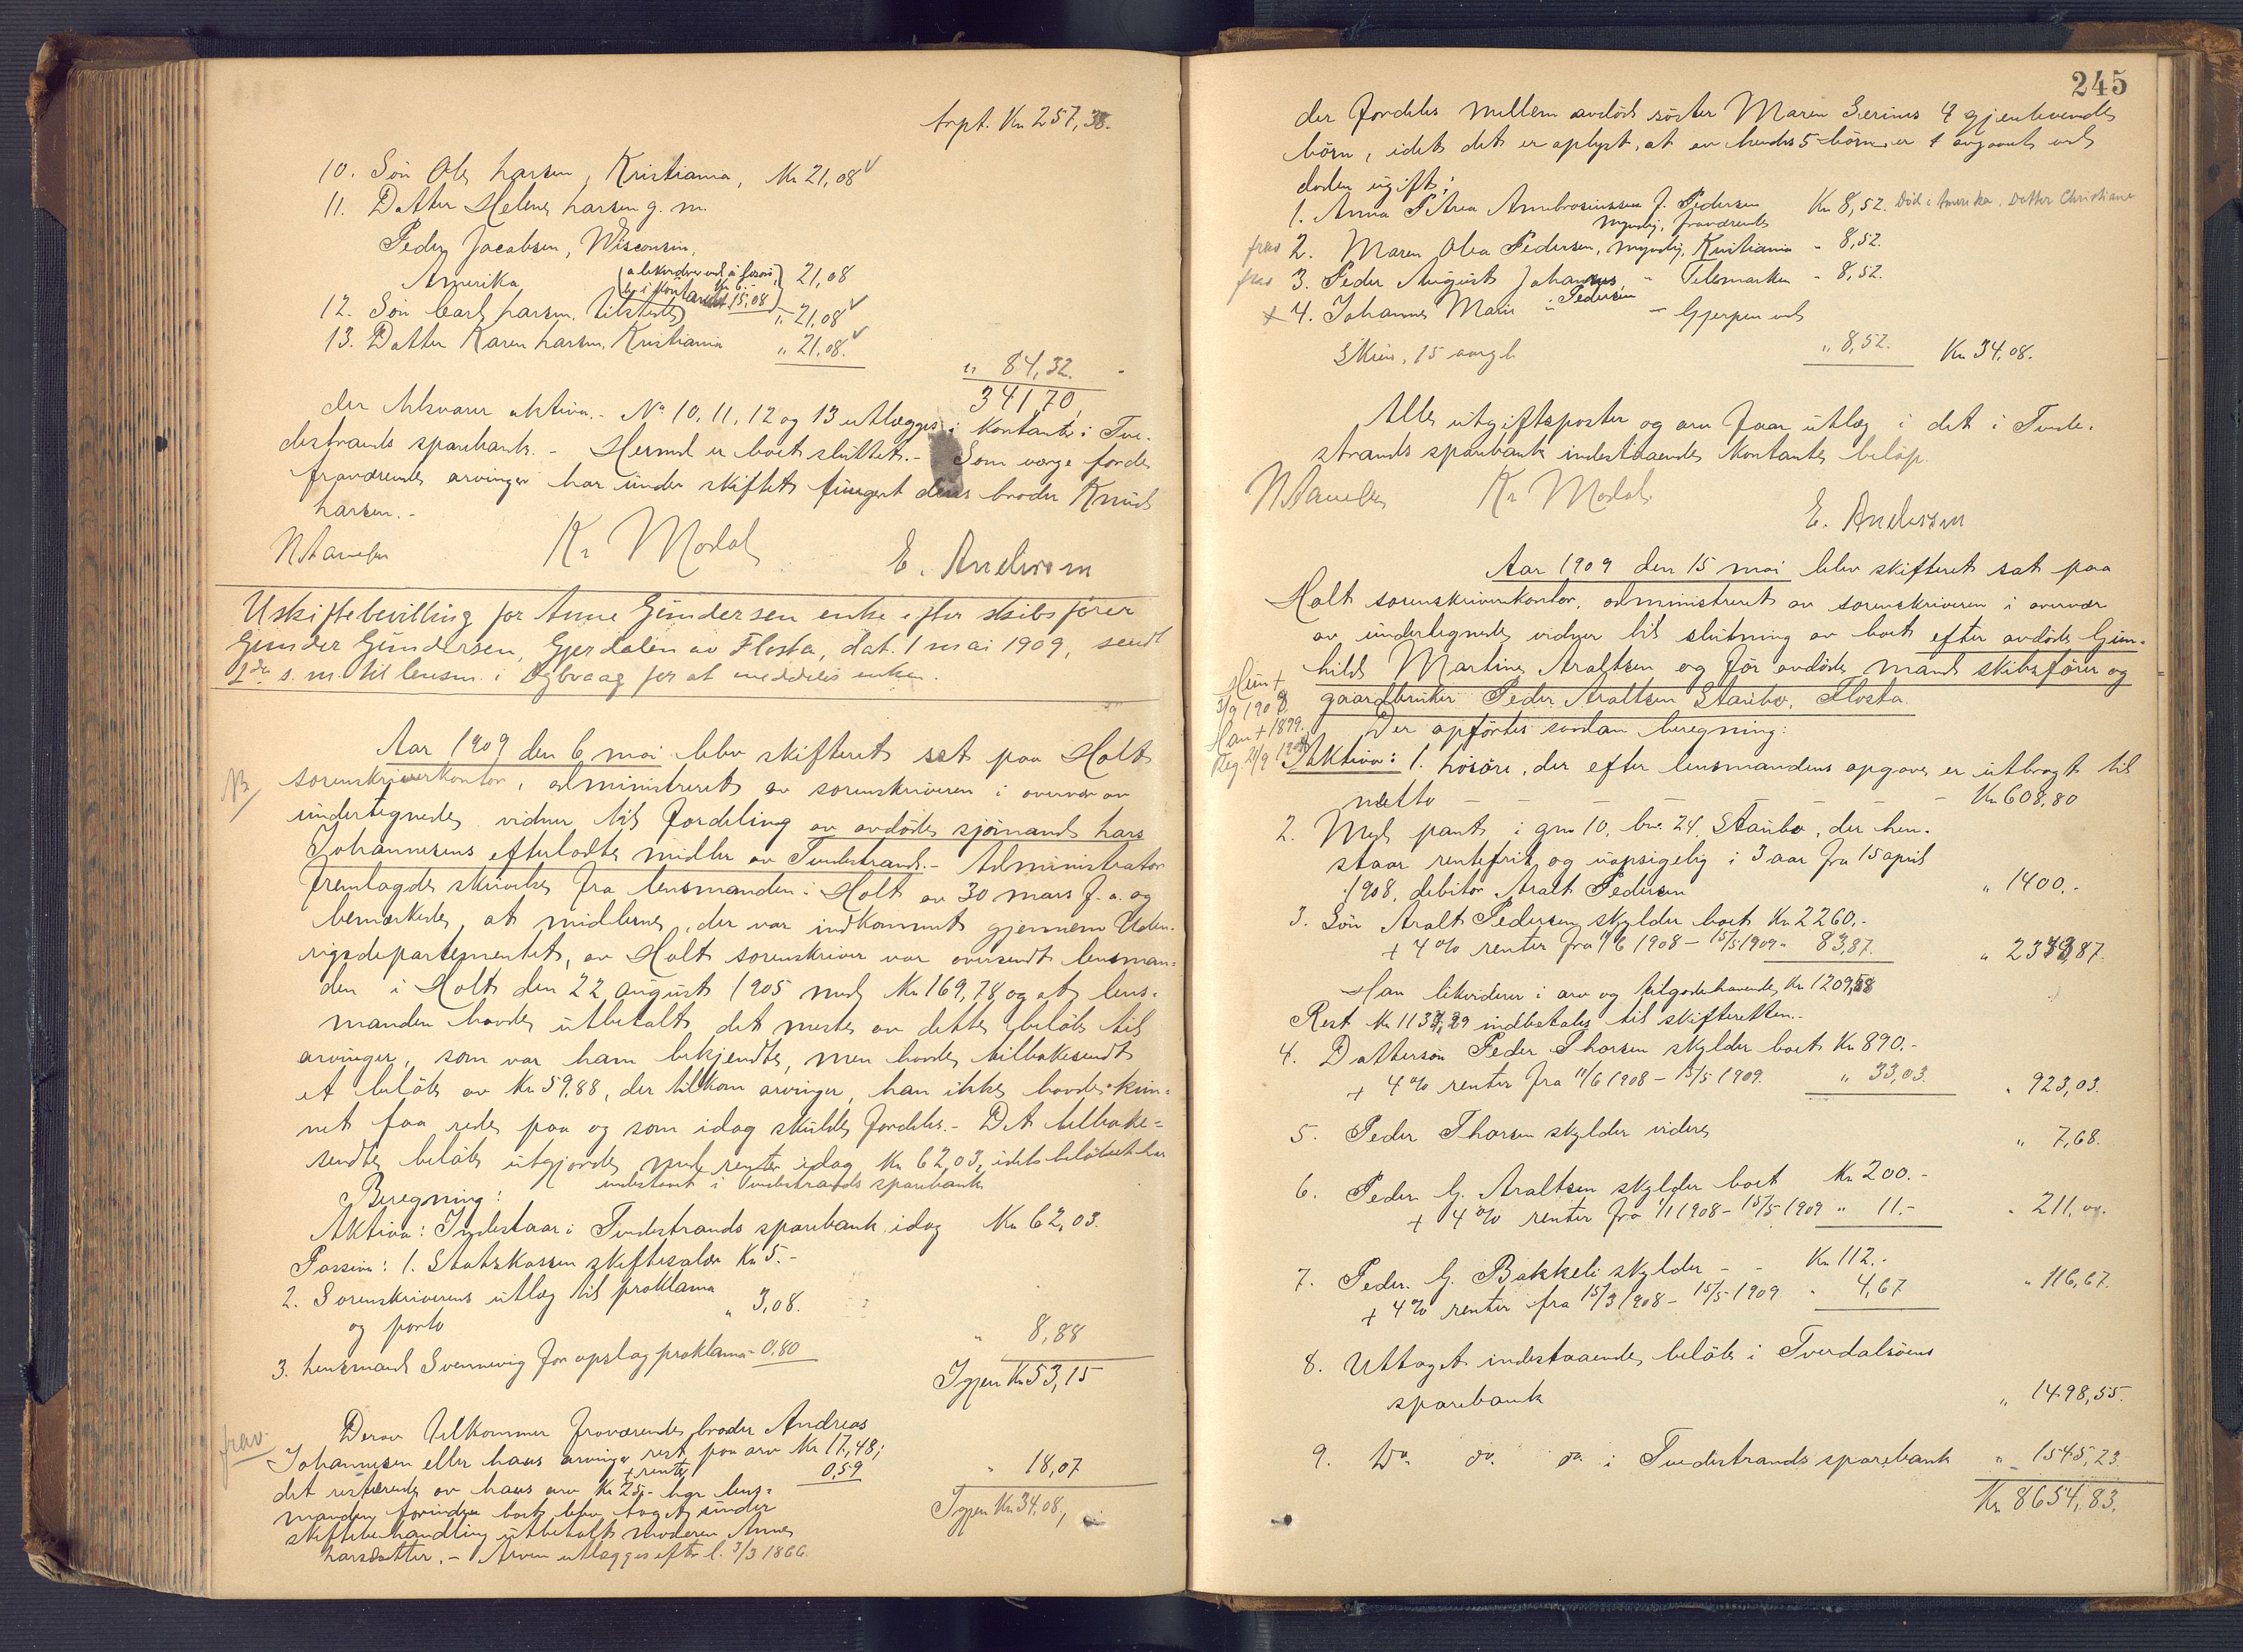 Trpt. Kr 257,38.
10. Søn Ole Larsen, Kristiania, Kr 21,08
11. Datter Helene Larsen g. m.
Peder Jacobsen, Wisconsin,
Amerika, 21,08
12. Søn Carl Larsen, tilstede " 21,08
13. Datter Karen Larsen, Kristiania " 21,08.
" 84,32.
341,70,
der tilsvarer aktiva. - No 10, 11, 12 og 13 utlægges i kontanter i Tve-
destrands sparebank. - Hermed er boet sluttet. - Som værge for de
fraværende arvinger har under skiftet fungert deres broder Knud
Larsen. -
Kr Modal
E. Anderssen
Uskiftebevilling for Anne Gundersen enke efter skibsfører
Gunder Gundersen, Gjerdalen av Flosta, dat. 1 mai 1909, sendt
s. m. til lensm. i Dybvaag for at meddeles enken.
Aar 1909 den 6 mai blev skifteret sat paa Holt
sorenskriverkontor, administreret av sorenskriveren i overvær av
undertegnede vidner til fordeling av avdøde sjømand Lars
Johannesens efterladte midler av Tvedestrand. - Administrator
fremlagde skrivelse fra lensmanden i Holt av 30 mars f. a. og
bemerkede, at midlerne, der var indkommet gjennem Uden-
rigsdepartementet, av Holt sorenskriver var oversendt lensman-
den i Holt den 22 august 1905 med Kr 169,78 og at lens-
manden havde utbetalt det meste av dette beløb til
arvinger, som var ham bekjendte, men havde tilbakesendt
et beløb av Kr 59,88, der tilkom arvinger, han ikke havde kun-
net faa rede paa og som idag skulde fordeles. - Det tilbake-
sendte beløb utgjorde med renter idag Kr 62,03, idet beløbet har
indestaat i Tvedestrands sparebank
Beregning:
Aktiva: Indestaar i Tvedestrands sparebank idag Kr 62,03.
Passiva: 1. Statskassen skiftesalær Kr 5.-
2. Sorenskriverens utlæg til proklama
og porto " 3,08.
3. Lensmand Svennevig for opslag proklama - 0,80
" 8,88
Igjen Kr 53,15
frav.
Derav tilkommer fraværende broder Andreas
Johannesen eller hans arvinger rest paa arv Kr 17,48;
+ renter 0,59
" 18,07
det resterende av hans arv Kr 25,- har lens-
Igjen Kr 34,08,
manden forinden boet blev taget under
skiftebehandling utbetalt moderen Anne
Larsdatter. - Arven utlægges efter l. 3/3 1866.
245
der fordeles mellem avdødes søster Maren Serines 4 gjenlevende
børn, idet det er oplyst, at av hendes 5 børn er 1 avgaaet ved
døden ugift:
1. Anna Petrea Ambrosiussen f. Pedersen
myndig, fraværende Kr 8,52. Død i Amerika. Datter Christiane
frav 2. Maren Olea Pedersen, myndig, Kristiania - 8,52.
frav 3. Peder August Johannes - Telemarken - 8,52.
+ 4. Johanne Marie Pedersen - Gjerpen ved
Skien, 15 aar gl. " 8,52. Kr 34,08.
Alle utgiftsposter og arv faar utlæg i det i Tvede-
strands sparebank indestaaende kontante beløp.
Kr Modal
E. Anderssen
Aar 1909 den 15 mai blev skifteret sat paa
Holt sorenskriverkontor, administreret av sorenskriveren i overvær
av undertegnede vidner til slutning av boet efter avdøde Gun-
hild Martine Araltsen og før avdøde mand skibsfører og
gaardbruker Peder Araltsen Staubø, Flosta.
Hun +
3/9 1908
Han + 1899.
Reg. 21/9 1908
Der opførtes saadan beregning:
Aktiva: 1. Løsøre, der efter lensmandens opgave er utbragt til
netto Kr 608,80
2. Med pant i gno 10, bno 24, Staubø, der hen-
staar rentefrit og uopsigelig i 3 aar fra 15 april
1908, debitor Aralt Pedersen " 1400.-
3. Søn Aralt Pedersen skylder boet Kr 2260.-
+ 4 % renter fra 11/6 1908 - 15/5 1909 " 83,87. " 2343,87.
Han likviderer i arv og tilgodehavende Kr 1209,58
Rest Kr 1134,29 indbetales til skifteretten.
4. Dattersøn Peder Thorsen skylder boet Kr 890.-
+ 4 % renter fra 11/6 1908 - 15/5 1909. " 33,03. " 923,03.
5. Peder Thorsen skylder videre " 7,68.
6. Peder G. Araltsen skylder boet Kr 200.-
+ 4 % renter fra 1/1 1908 - 15/5 1909 " 11.- " 211,00.
7. Peder G. Bakkeli skylder - - Kr 112.-
+ 4 % renter fra 15/3 1908 - 15/5 1909 " 4,67 " 116,67.
8. Uttaget indestaaende beløb i Tverdalsøens
sparebank " 1498,55.
9. Do. do. do. i Tvedestrands sparebank " 1545,23.
Kr 8654,83.